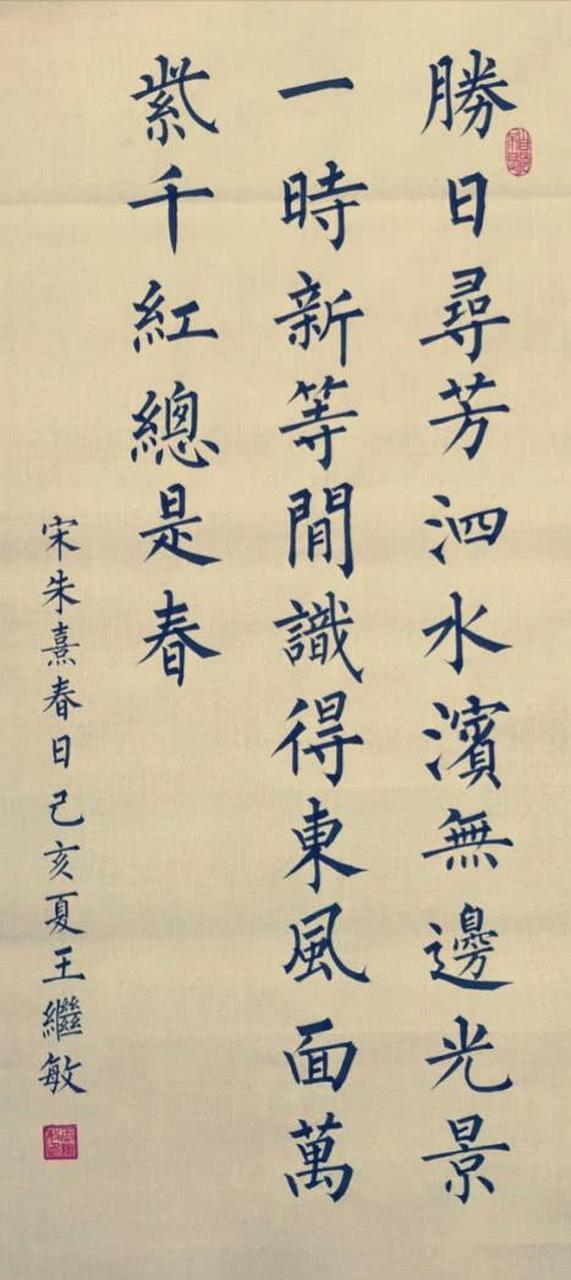 勝日尋芳泗水濱無邊光景
一時新等閒識得東風面萬
紫千紅總是春
宋朱熹春日己亥夏王繼敏